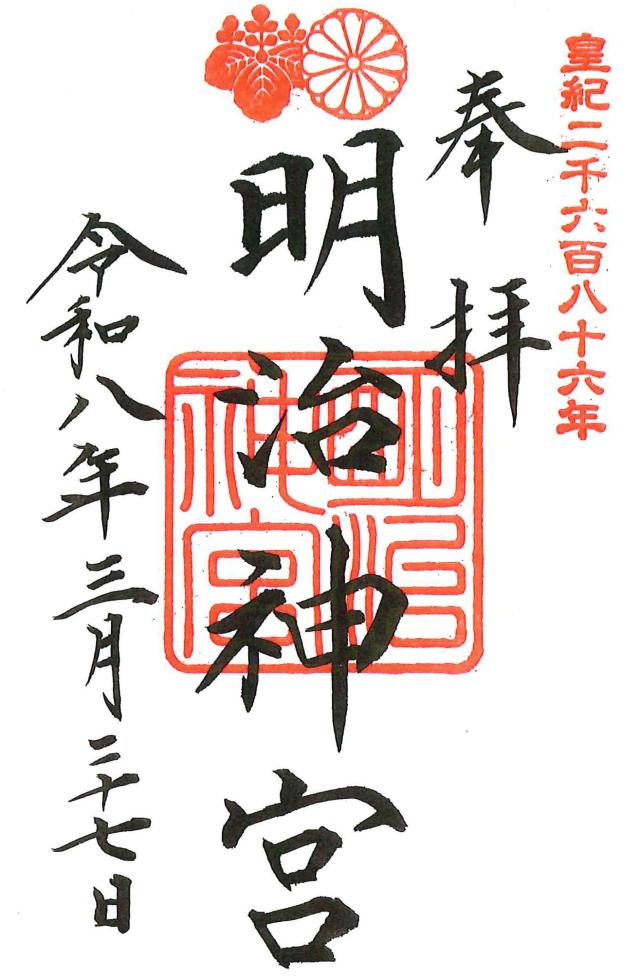 皇紀二千六百八十六年
奉拝
明治神宮
明治神宮
令和八年三月二十七日